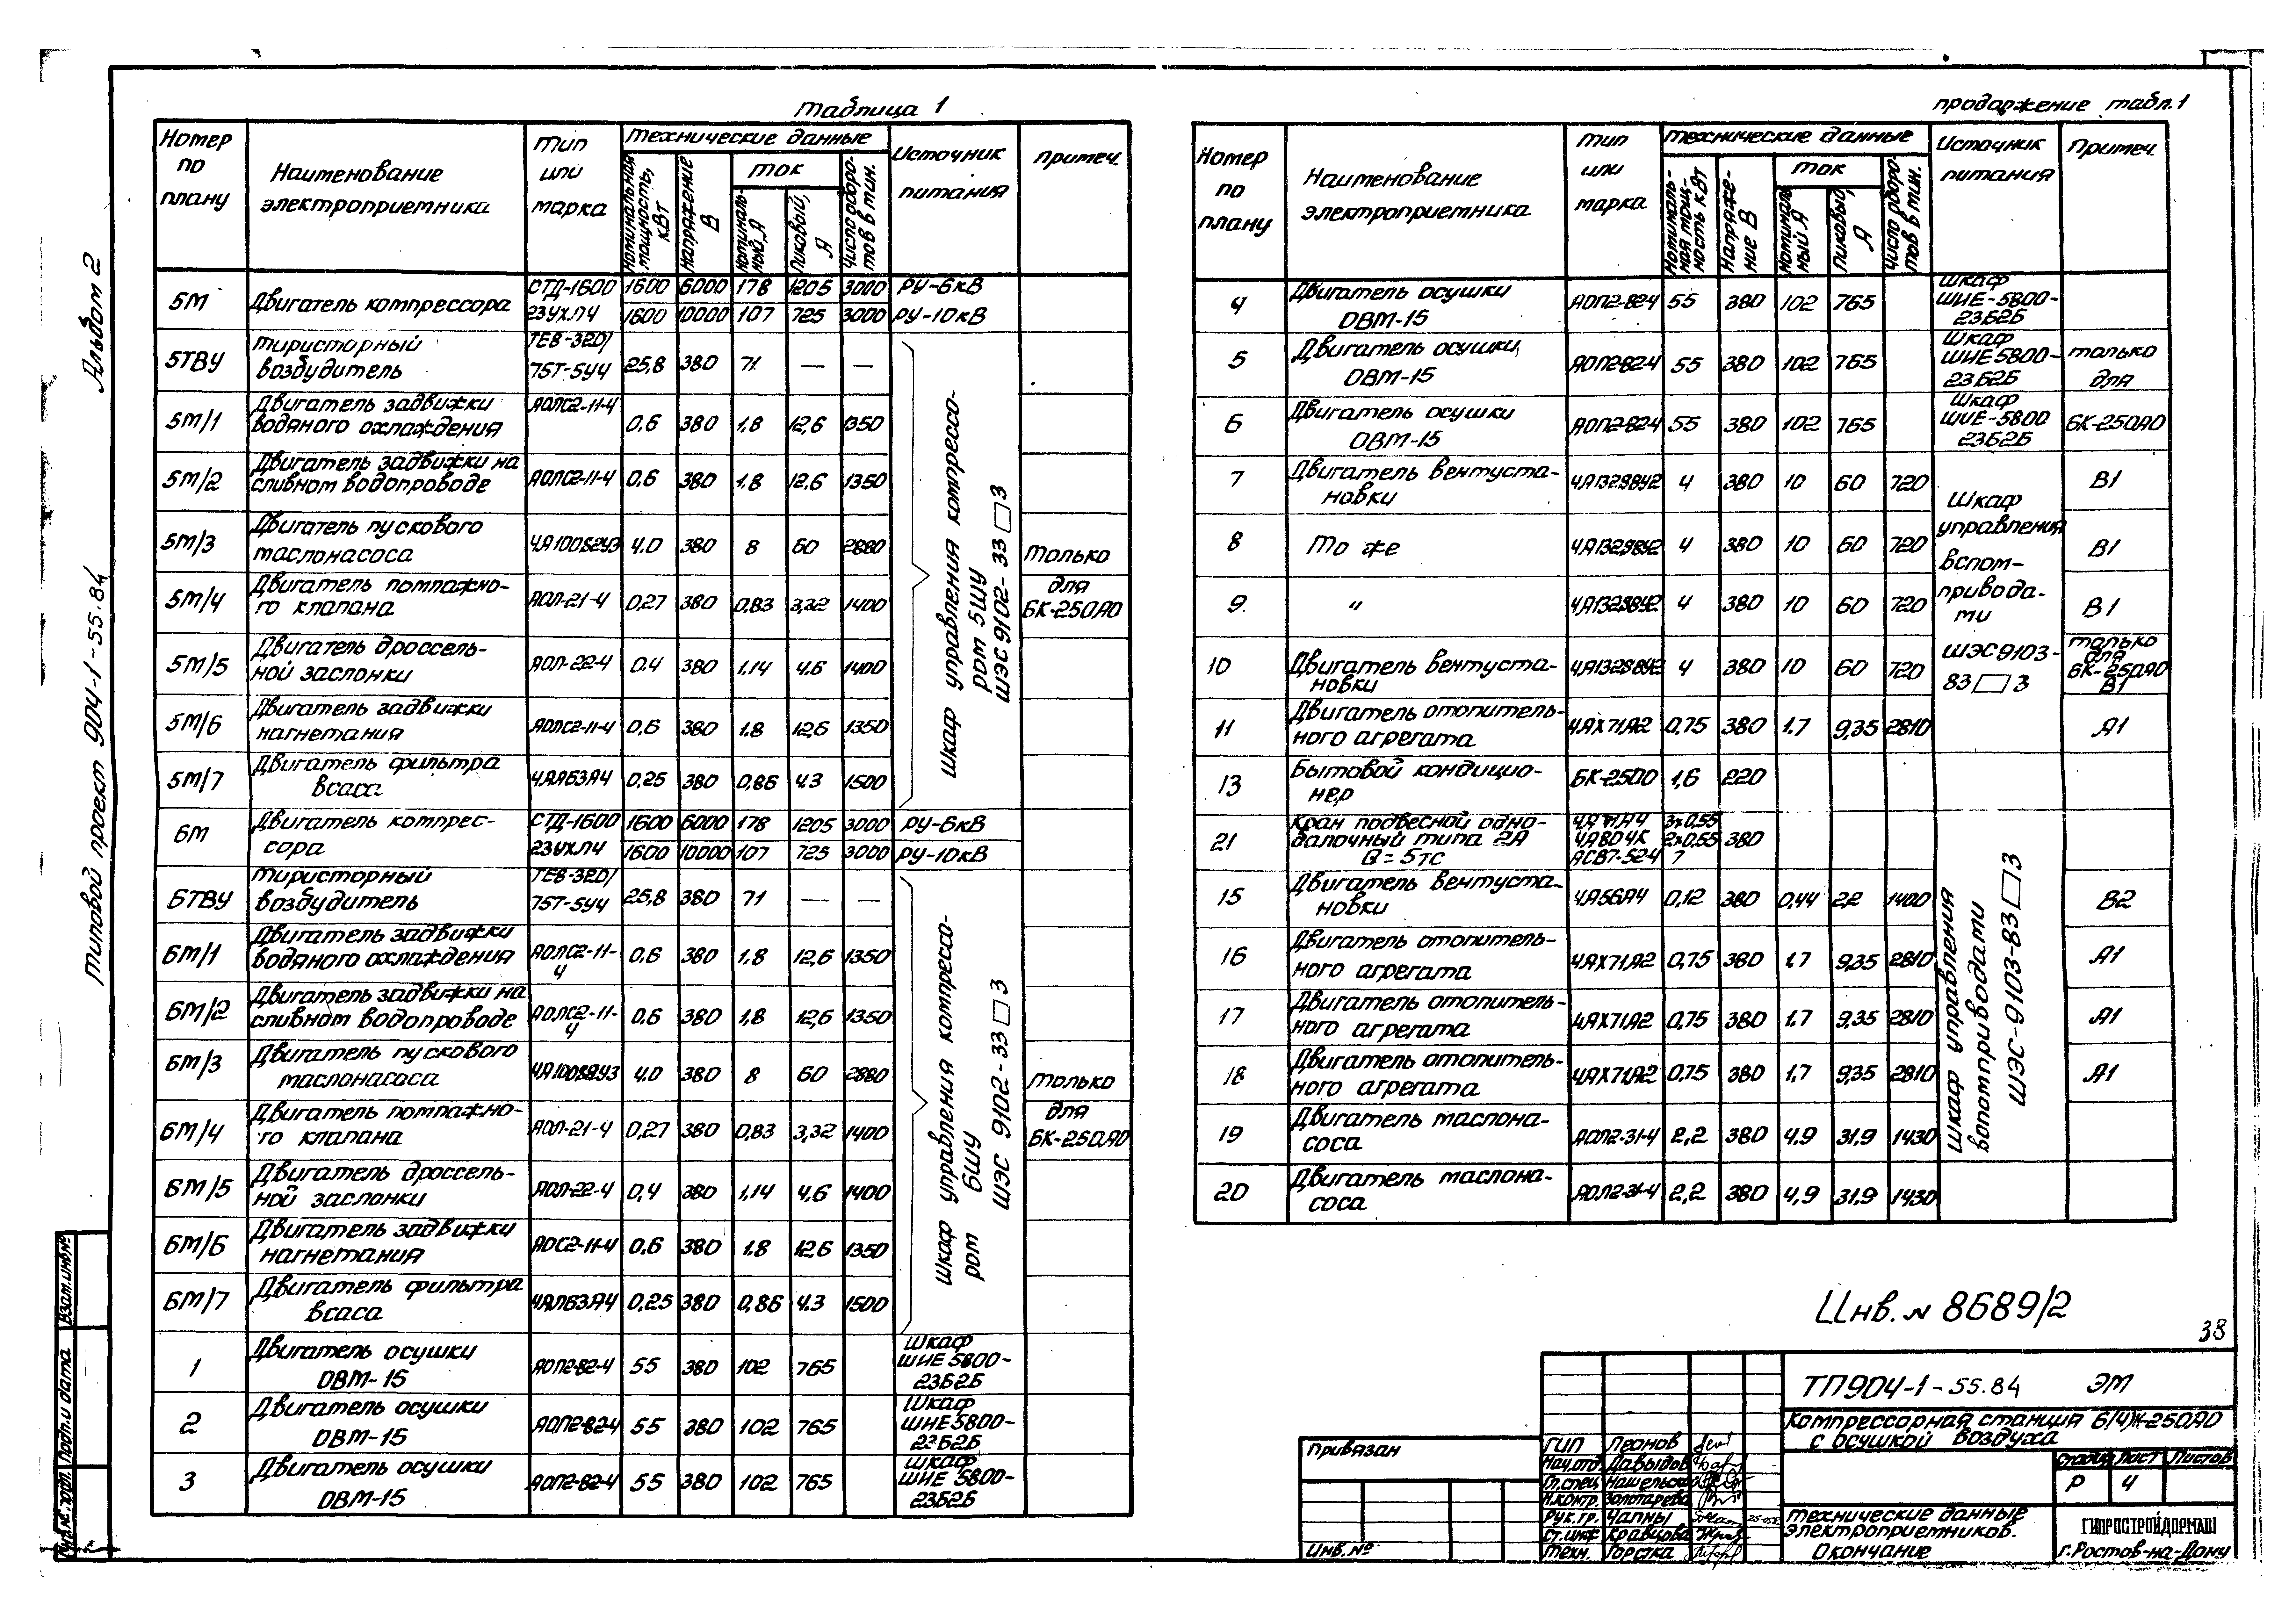 Таблица 1
Номер по плану | Наименование электроприемника | Тип или марка | Технические данные | Источник питания | Примеч.
Номинальная мощность, кВт | Напряжение В | Ток | Число оборотов в мин.
Номинальный, А | Пиковый, А
5М | Двигатель компрессора | СТД-1600 23УХЛ4 | 1600 | 6000 | 178 | 1205 | 3000 | РУ-6кВ
1600 | 10000 | 107 | 725 | 3000 | РУ-10кВ
5ТВУ | Тиристорный возбудитель | ТЕ8-320/75Т-5У4 | 25,8 | 380 | 71 | — | —
5М/1 | Двигатель задвижки водяного охлаждения | АОЛС2-11-4 | 0,6 | 380 | 1,8 | 12,6 | 1350
5М/2 | Двигатель задвижки на сливном водопроводе | АОЛС2-11-4 | 0,6 | 380 | 1,8 | 12,6 | 1350
5М/3 | Двигатель пускового маслонасоса | 4А100S2У3 | 4.0 | 380 | 8 | 60 | 2880
5М/4 | Двигатель помпажного клапана | АОЛ-21-4 | 0,27 | 380 | 0,83 | 3,32 | 1400
5М/5 | Двигатель дроссельной заслонки | АОЛ-22-4 | 0.4 | 380 | 1.14 | 4.6 | 1400
5М/6 | Двигатель задвижки нагнетания | АОЛС2-11-4 | 0,6 | 380 | 1.8 | 12,6 | 1350
5М/7 | Двигатель фильтра всаса | 4АА63А4 | 0,25 | 380 | 0,86 | 4.3 | 1500
Шкаф управления компрессором 5ШУ ШЭС 9102-33□3
Только для 6К-250АО
6М | Двигатель компрессора | СТД-1600 23УХЛ4 | 1600 | 6000 | 178 | 1205 | 3000 | РУ-6кВ
1600 | 10000 | 107 | 725 | 3000 | РУ-10кВ
6ТВУ | Тиристорный возбудитель | ТЕ8-320/75Т-5У4 | 25,8 | 380 | 71 | — | —
6М/1 | Двигатель задвижки водяного охлаждения | АОЛС2-11-4 | 0.6 | 380 | 1,8 | 12,6 | 1350
6М/2 | Двигатель задвижки на сливном водопроводе | АОЛС2-11-4 | 0.6 | 380 | 1,8 | 12,6 | 1350
6М/3 | Двигатель пускового маслонасоса | 4А100S2У3 | 4.0 | 380 | 8 | 60 | 2880
6М/4 | Двигатель помпажного клапана | АОЛ-21-4 | 0,27 | 380 | 0,83 | 3,32 | 1400
6М/5 | Двигатель дроссельной заслонки | АОЛ-22-4 | 0,4 | 380 | 1,14 | 4.6 | 1400
6М/6 | Двигатель задвижки нагнетания | АОС2-11-4 | 0,6 | 380 | 1.8 | 12,6 | 1350
6М/7 | Двигатель фильтра всаса | 4АА63А4 | 0,25 | 380 | 0,86 | 4.3 | 1500
Шкаф управления компрессором 6ШУ ШЭС 9102-33□3
Только для 6К-250АО
1 | Двигатель осушки ОВМ-15 | АОП2-82-4 | 55 | 380 | 102 | 765 | Шкаф ШИЕ 5800-23Б2Б
2 | Двигатель осушки ОВМ-15 | АОП2-82-4 | 55 | 380 | 102 | 765 | Шкаф ШИЕ5800-23Б2Б
3 | Двигатель осушки ОВМ-15 | АОП2-82-4 | 55 | 380 | 102 | 765 | Шкаф ШИЕ 5800-23Б2Б
продолжение табл.1
Номер по плану | Наименование электроприемника | Тип или марка | Технические данные | Источник питания | Примеч.
Номинальная мощность кВт | Напряжение В | Ток | Число оборотов в мин.
Номинальный А | Пиковый, А
4 | Двигатель осушки ОВМ-15 | АОП2-82-4 | 55 | 380 | 102 | 765 | Шкаф ШИЕ-5800-23Б2Б
5 | Двигатель осушки ОВМ-15 | АОП2-82-4 | 55 | 380 | 102 | 765 | Шкаф ШИЕ5800-23Б2Б | только для
6 | Двигатель осушки ОВМ-15 | АОП2-82-4 | 55 | 380 | 102 | 765 | Шкаф ШИЕ-5800 23Б2Б | 6К-250АО
7 | Двигатель вентустановки | 4А132S8У2 | 4 | 380 | 10 | 60 | 720 | В1
8 | То же | 4А132S8У2 | 4 | 380 | 10 | 60 | 720 | В1
9 | " | 4А132S8У2 | 4 | 380 | 10 | 60 | 720 | В1
10 | Двигатель вентустановки | 4А132S8У2 | 4 | 380 | 10 | 60 | 720 | только для 6К-250АО В1
11 | Двигатель отопительного агрегата | 4АХ71А2 | 0,75 | 380 | 1.7 | 9,35 | 2810 | А1
Шкаф управления вспомприводами ШЭС9103-83□3
13 | Бытовой кондиционер | БК-2500 | 1,6 | 220
21 | Кран подвесной однобалочный типа 2А Q=5тс | 4А71А4 4А80 4К АСВ7-52-4 | 3х0.55 2х0.55 7 | 380
15 | Двигатель вентустановки | 4А56А4 | 0,12 | 380 | 0,44 | 2,2 | 1400 | В2
16 | Двигатель отопительного агрегата | 4АХ71А2 | 0,75 | 380 | 1.7 | 9,35 | 2810 | А1
17 | Двигатель отопительного агрегата | 4АХ71А2 | 0,75 | 380 | 1.7 | 9,35 | 2810 | А1
18 | Двигатель отопительного агрегата | 4АХ71А2 | 0,75 | 380 | 1.7 | 9,35 | 2810 | А1
19 | Двигатель маслонасоса | АОЛ2-31-4 | 2,2 | 380 | 4.9 | 31.9 | 1430
20 | Двигатель маслонасоса | АОЛ2-31-4 | 2,2 | 380 | 4,9 | 31.9 | 1430
Шкаф управления вспомприводами ШЭС-9103-83□3
Типовой проект 904-1-55.84 Альбом 2
Взам.инв№
Подп.и дата
Инв. N 8689/2
38
Привязан
Инв.№
ТП904-1-55.84 ЭМ
Компрессорная станция 6(4)К-250АО
с осушкой воздуха
ГИП Леонов
Нач.отд. Давыдов
Гл.спец.
Н.контр. Золотарева
Рук.гр. Чапны
Ст.инж Кравцова
Техн. Горстка
Стадия Лист Листов
Р 4
Технические данные
электроприемников.
Окончание
ГИПРОСТРОЙДОРМАШ
г.Ростов-на-Дону